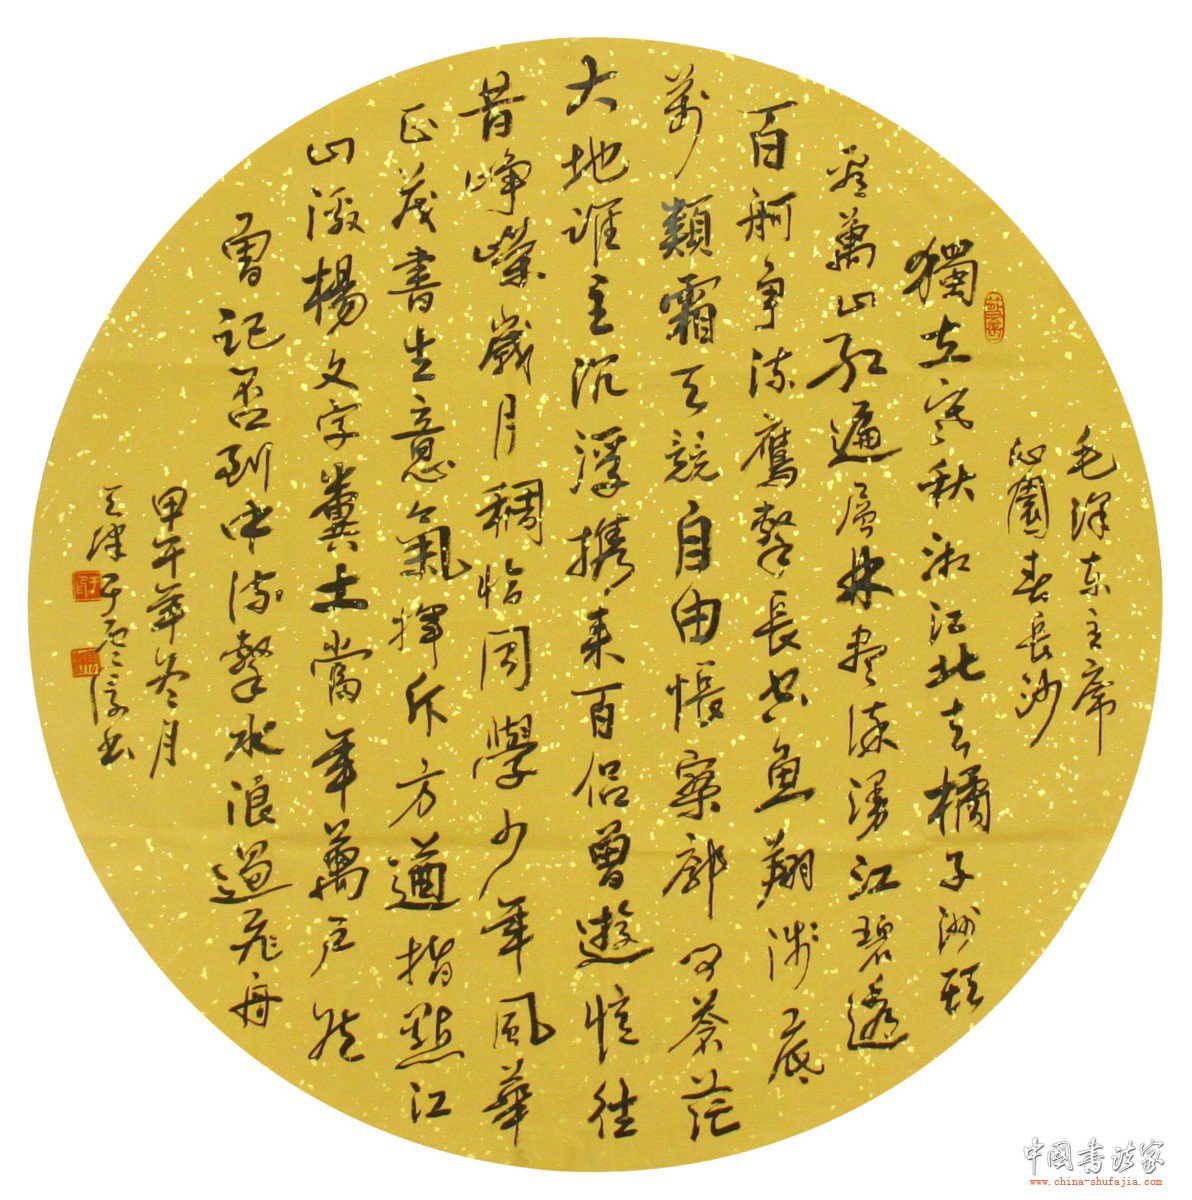 毛泽東主席
沁園春長沙
獨立寒秋湘江北去橘子洲頭
看萬山紅遍層林盡染漫江碧透
百舸争流鷹擊長空魚翔淺底
萬類霜天競自由悵寥廓問蒼茫
大地誰主沉浮携来百侣曾遊憶往
昔峥嶸歲月稠恰同學少年風華
正茂書生意氣揮斥方遒指點江
山激楊文字糞土當年萬户侯
曾記否到中流擊水浪遏飛舟
甲午年冬月
天津于書
中國書法家
www.china-shufajia.com